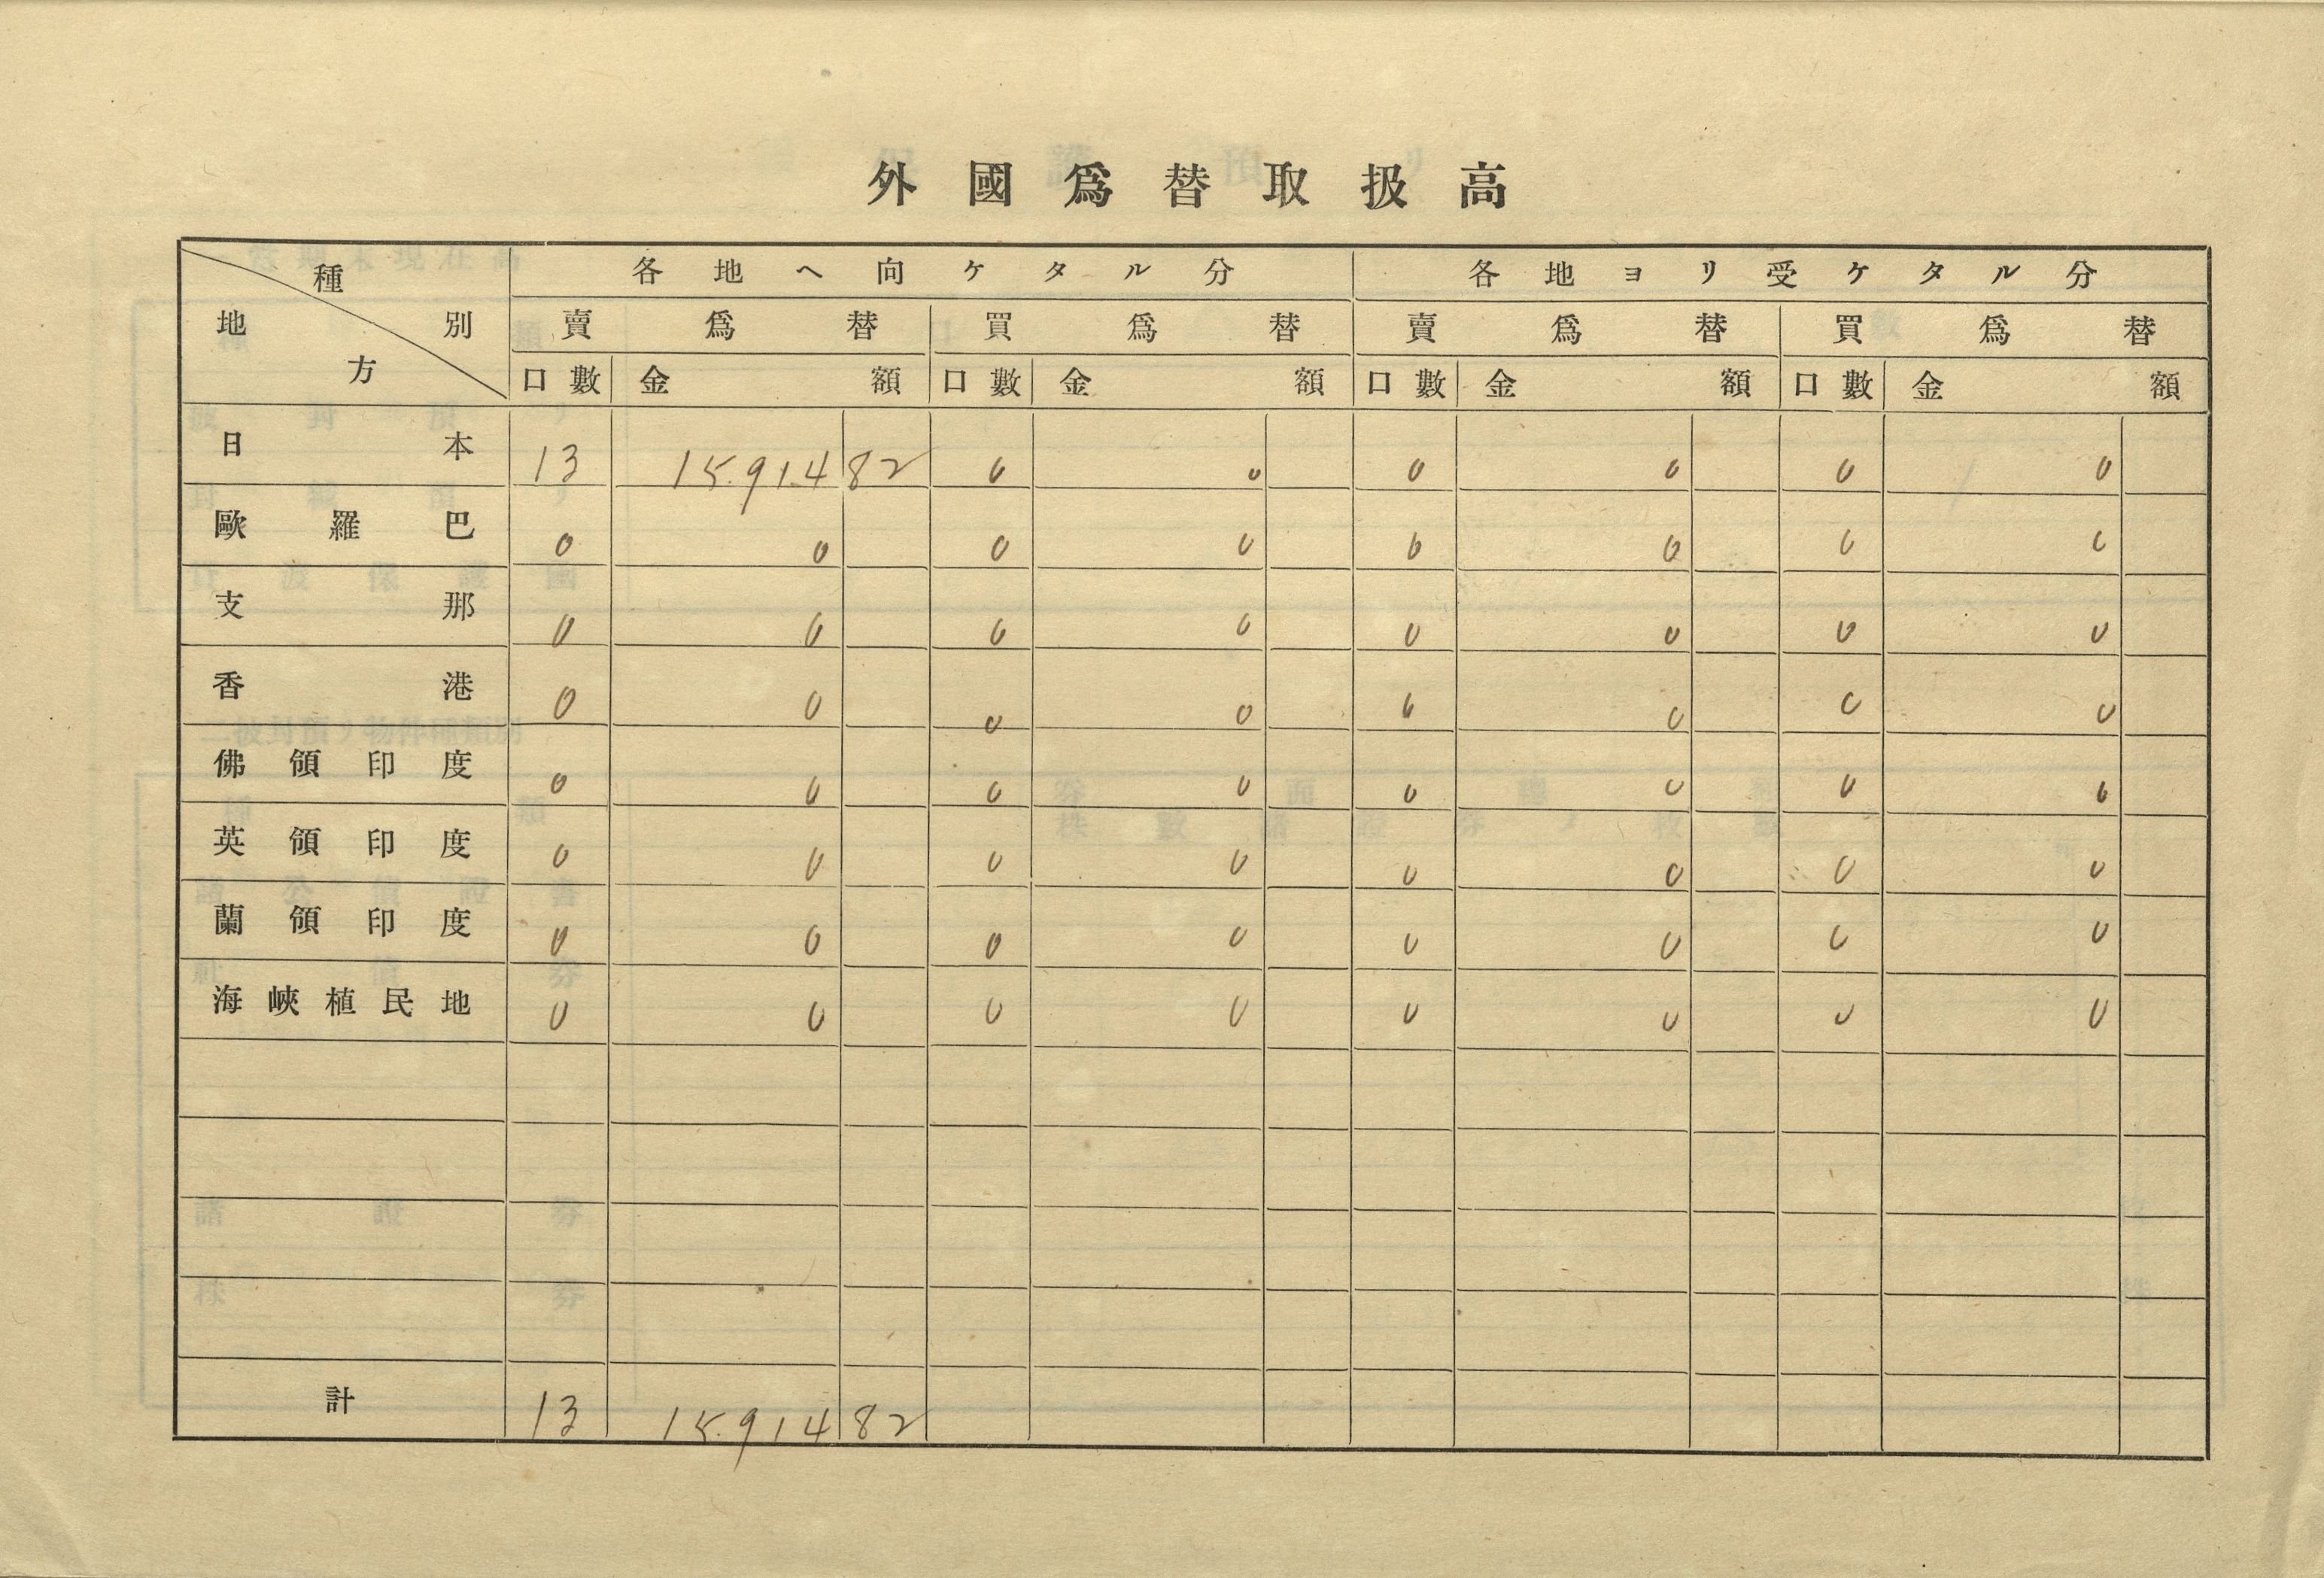 外國爲替取扱高
種別 地方 各地ヘ向ケタル分 各地ヨリ受ケタル分
賣爲替 買爲替 賣爲替 買爲替
口數 金額 口數 金額 口數 金額 口數 金額
日本 13 15.914 82 0 0 0 0 0 0
歐羅巴 0 0 0 0 0 0 0 0
支那 0 0 0 0 0 0 0 0
香港 0 0 0 0 0 0 0 0
佛領印度 0 0 0 0 0 0 0 0
英領印度 0 0 0 0 0 0 0 0
蘭領印度 0 0 0 0 0 0 0 0
海峽植民地 0 0 0 0 0 0 0 0
計 13 15.914 82